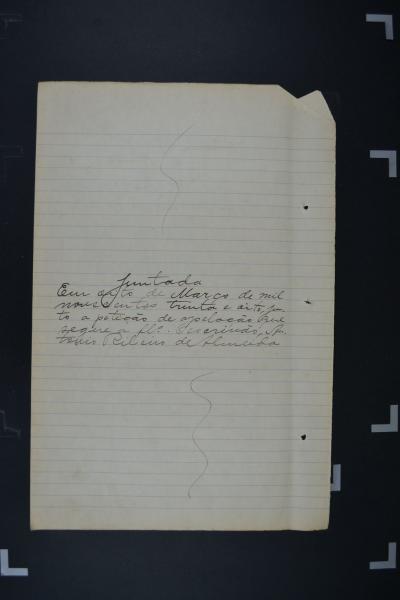 Juntada
Em oito de Março de mil
novecentos trinta e oito, jun-
to a petição de apelação que
segue a fls. O escrivão, An-
tonio Ribeiro de Almeida